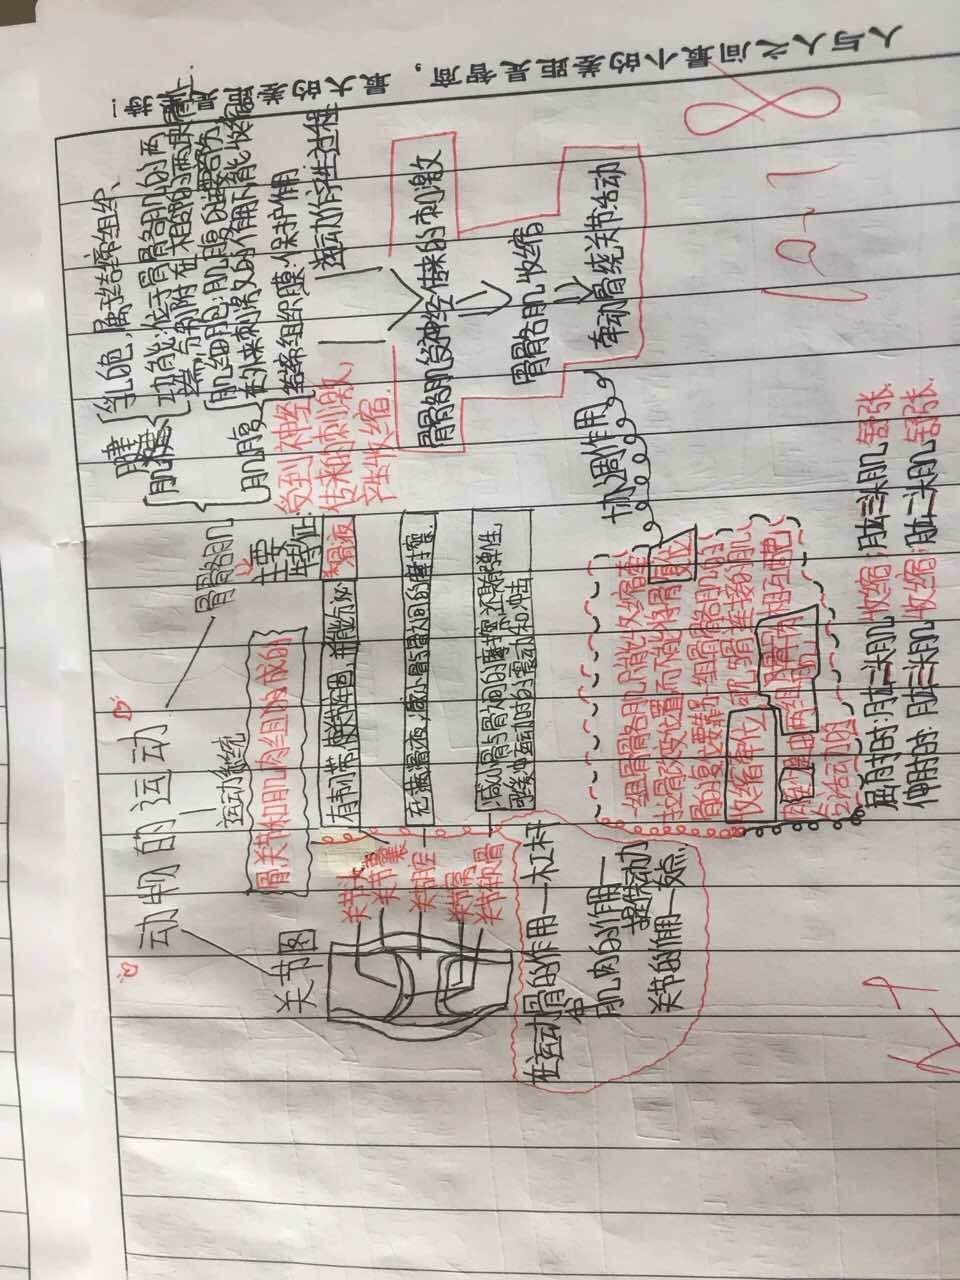 人与人之间最小的差距是智商，最大的差距是坚持！
动物的运动
关节图
运动系统
骨骼肌
骨关节和肌肉组成的
关节头
关节囊
关节腔
关节窝
关节软骨
有韧带使关节牢固，并能分泌滑液
充满滑液，减小骨与骨之间的摩擦
减小骨与骨之间的摩擦还有弹性
缓冲运动时的震动和冲击
在运动中骨的作用—杠杆
肌肉的作用—提供动力
关节的作用—支点
主要特征
受到神经
传来的刺激
产生收缩
肌腱
乳白色，属于结缔组织、
功能：位于骨骼肌的两
端，分别附在相邻的两块骨上
肌腹
肌细胞：
来刺激的作用下能收缩
结缔组织膜：保护作用
运动的产生过程
骨骼肌受神经传来的刺激
骨骼肌收缩
牵动骨绕关节活动
协调作用
一组骨骼肌只能收缩牵
拉骨改变位置而不能将骨复位
骨的复位要靠另一组骨骼肌的
收缩牵位
与骨连接的肌肉
两组肌肉相互配合活动的
屈肘时：肱二头肌收缩；肱三头肌舒张
伸肘时：肱三头肌收缩；肱二头肌舒张
10-1